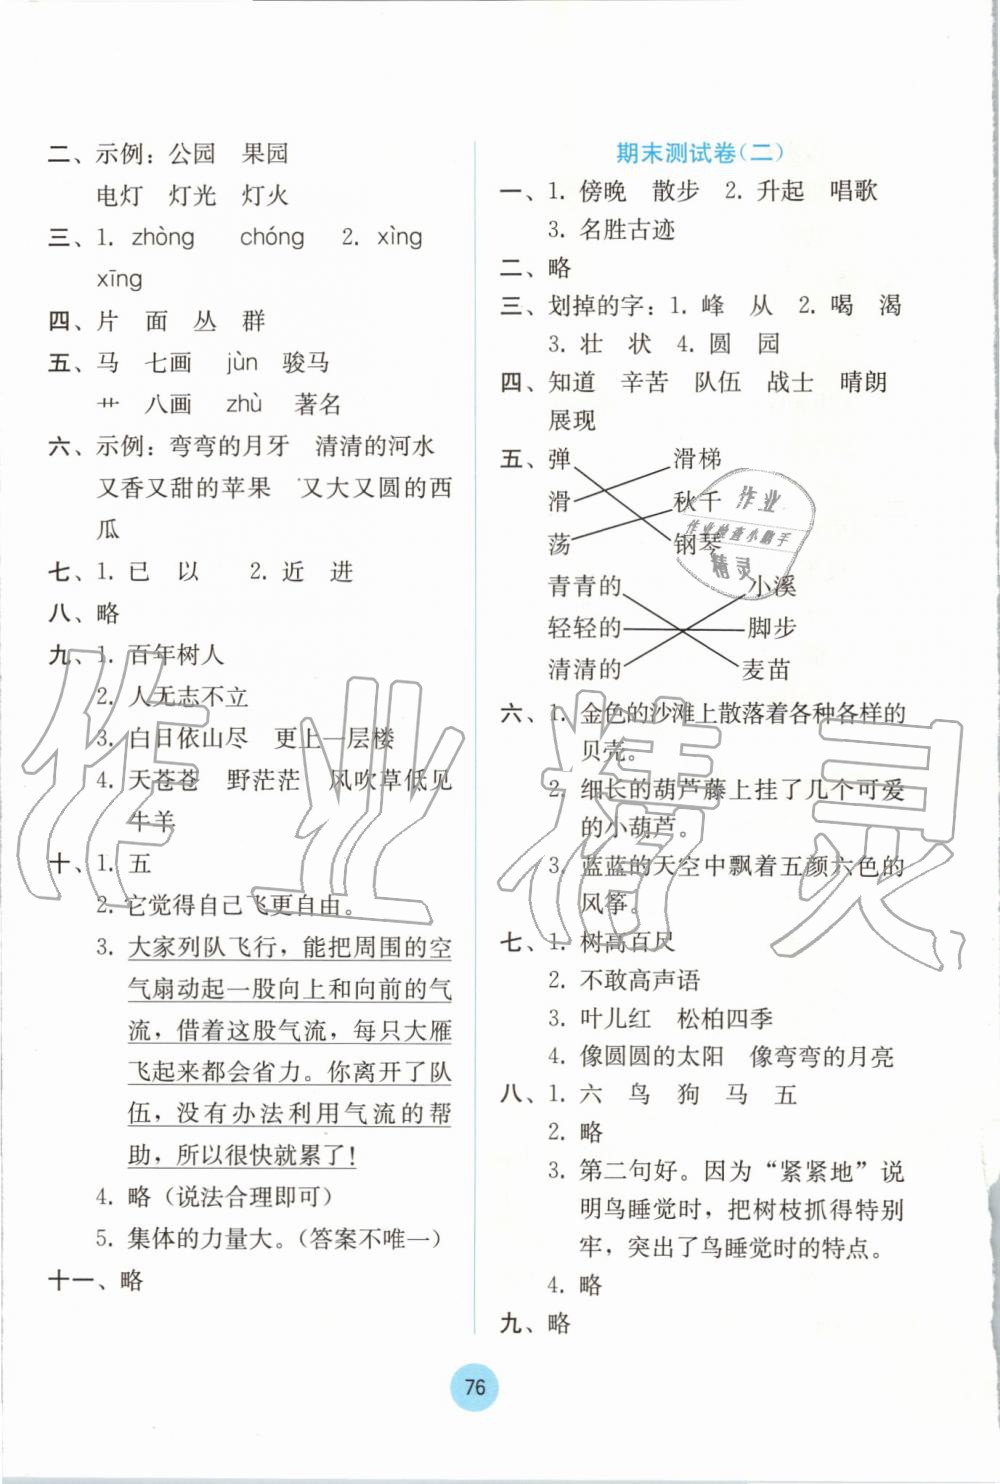 二、示例：公园　果园
电灯　灯光　灯火
三、1. zhòng　chóng　2. xìng
xīng
四、片　面　丛　群
五、马　七画　jùn　骏马
艹　八画　zhù　著名
六、示例：弯弯的月牙　清清的河水
又香又甜的苹果　又大又圆的西
瓜
七、1. 已　以　2. 近　进
八、略
九、1. 百年树人
2. 人无志不立
3. 白日依山尽　更上一层楼
4. 天苍苍　野茫茫　风吹草低见
牛羊
十、1. 五
2. 它觉得自己飞更自由。
3. 大家列队飞行，能把周围的空
气扇动起一股向上和向前的气
流，借着这股气流，每只大雁
飞起来都会省力。你离开了队
伍，没有办法利用气流的帮
助，所以很快就累了！
4. 略（说法合理即可）
5. 集体的力量大。（答案不唯一）
十一、略
期末测试卷（二）
一、1. 傍晚　散步　2. 升起　唱歌
3. 名胜古迹
二、略
三、划掉的字：1. 峰　从　2. 喝　渴
3. 壮　状　4. 圆　园
四、知道　辛苦　队伍　战士　晴朗
展现
五、弹　滑梯
滑　秋千
荡　钢琴
青青的　小溪
轻轻的　脚步
清清的　麦苗
六、1. 金色的沙滩上散落着各种各样的
贝壳。
2. 细长的葫芦藤上挂了几个可爱
的小葫芦。
3. 蓝蓝的天空中飘着五颜六色的
风筝。
七、1. 树高百尺
2. 不敢高声语
3. 叶儿红　松柏四季
4. 像圆圆的太阳　像弯弯的月亮
八、1. 六　鸟　狗　马　五
2. 略
3. 第二句好。因为“紧紧地”说
明鸟睡觉时，把树枝抓得特别
牢，突出了鸟睡觉时的特点。
4. 略
九、略
76
作业精灵
作业
作业检查小助手
精灵